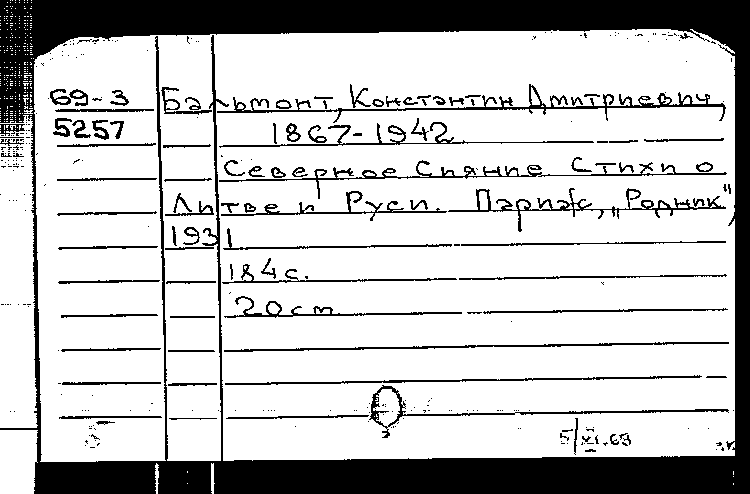 69-3 Бальмонт, Константин Дмитриевич,
5257 1867-1942
Северное Сияние Стихи о
Литве и Руси. Париж, „Родник",
1931
184с.
20cm
5/XI.69